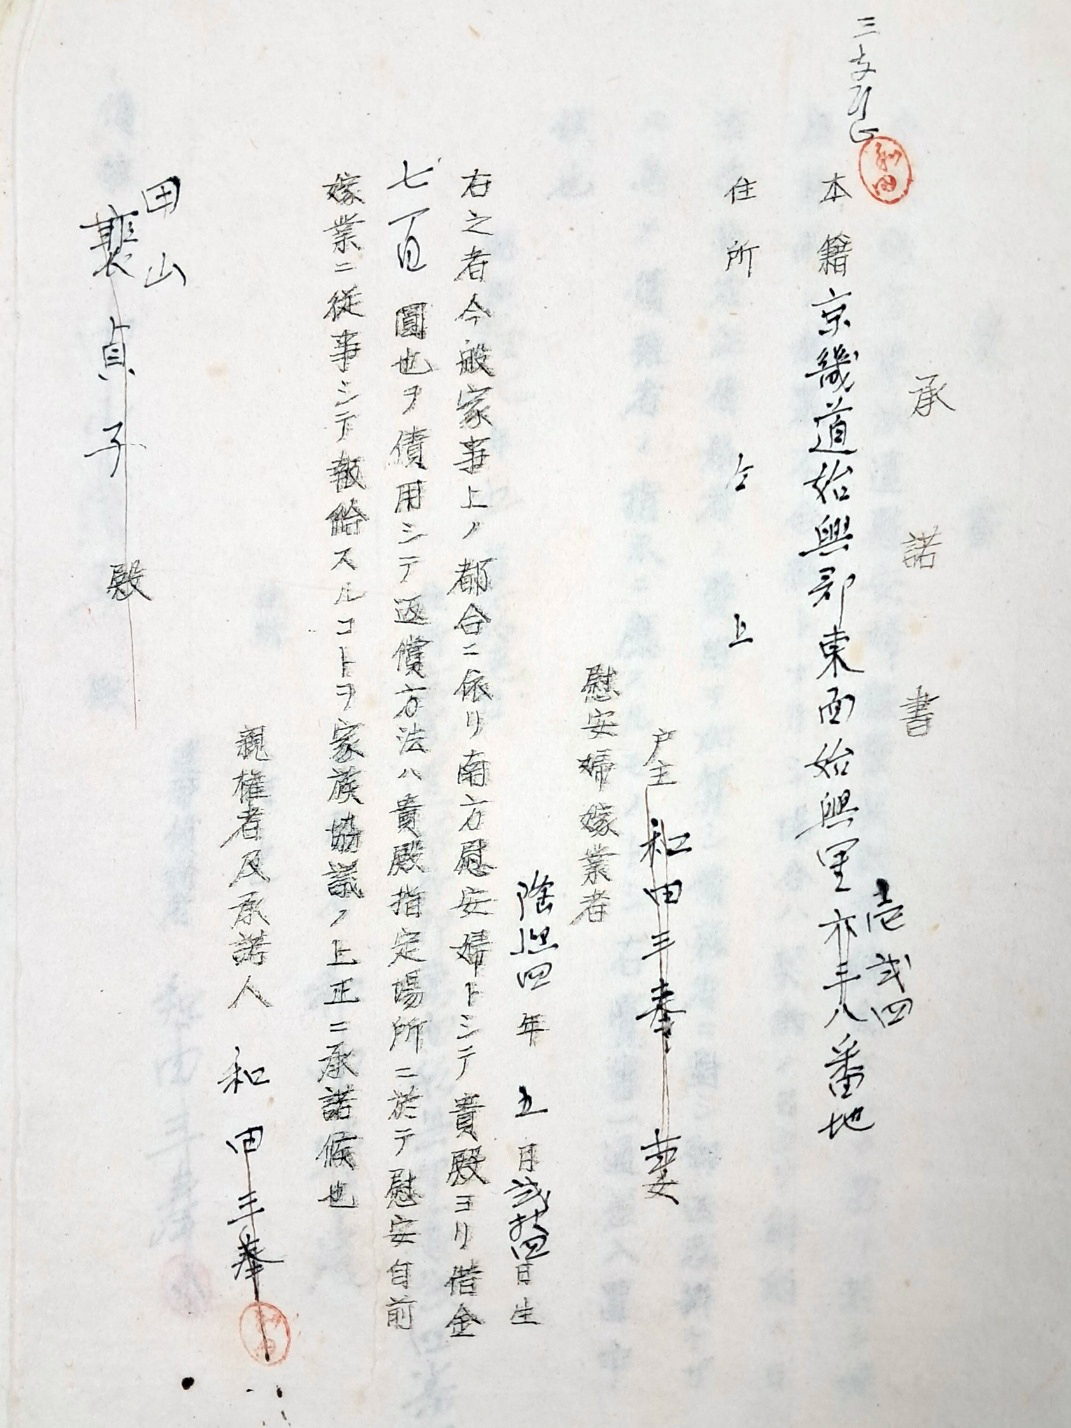 三字訂正
和田
承諾書
本籍 京畿道始興郡東面始興里
壱弐四
六三八番地
住所 仝上
戸主 和田三奉 妻
慰安婦嫁業者
四年五月弐拾四日生
右之者今般家事上ノ都合ニ依リ南方慰安婦トシテ貴殿ヨリ借金
七百圓也ヲ債用シテ返償方法ハ貴殿指定場所ニ於テ慰安自前
嫁業ニ従事シテ報給スルコトヲ家族協議ノ上正ニ承諾候也
親権者及承諾人 和田三奉
甲山
裵貞子 殿